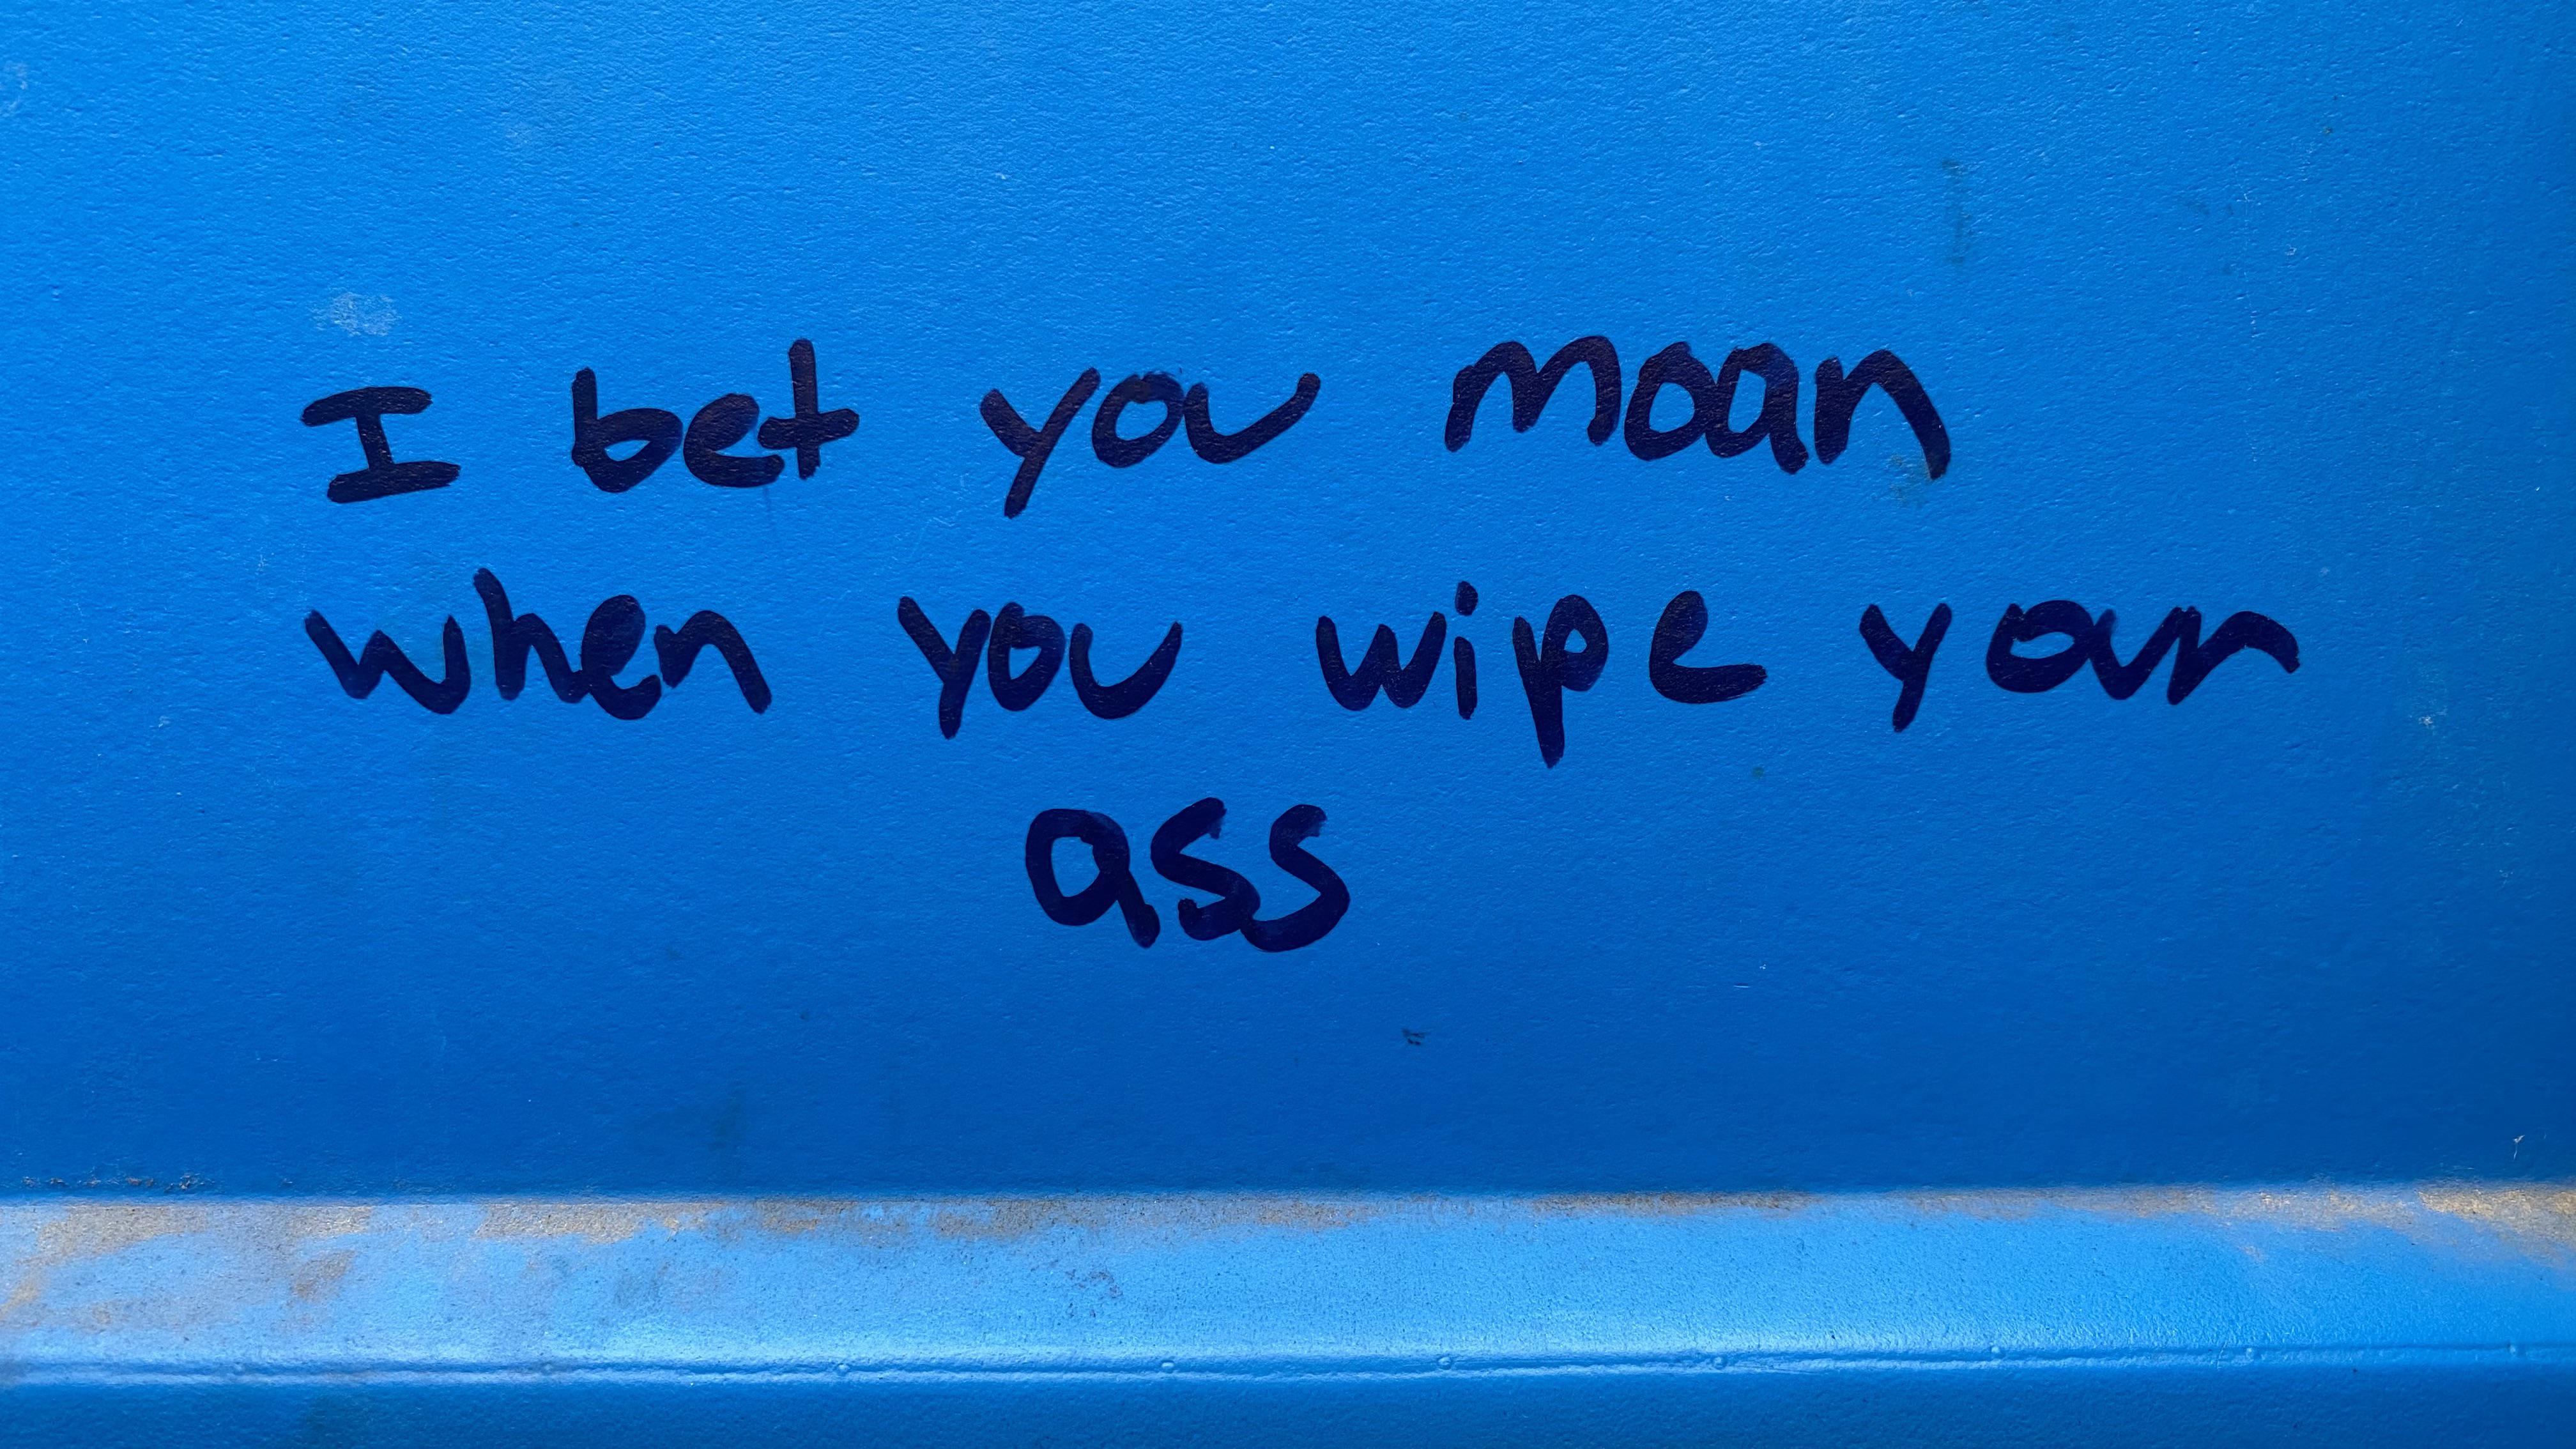 I bet you moan
when you wipe your
ass